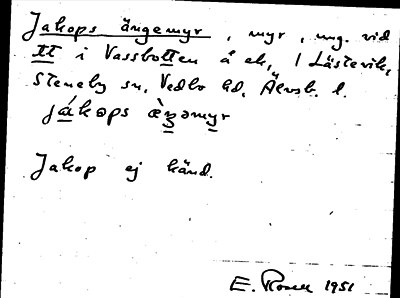 Jakops ängemyr, myr, ung. vid
tt i Vassbotten å ek, 1 Lästevik,
Steneby sn, Vedbo hd, Älvsb. l.
jákops æ̀ŋəmyr
Jakop ej känd.
E. 1951